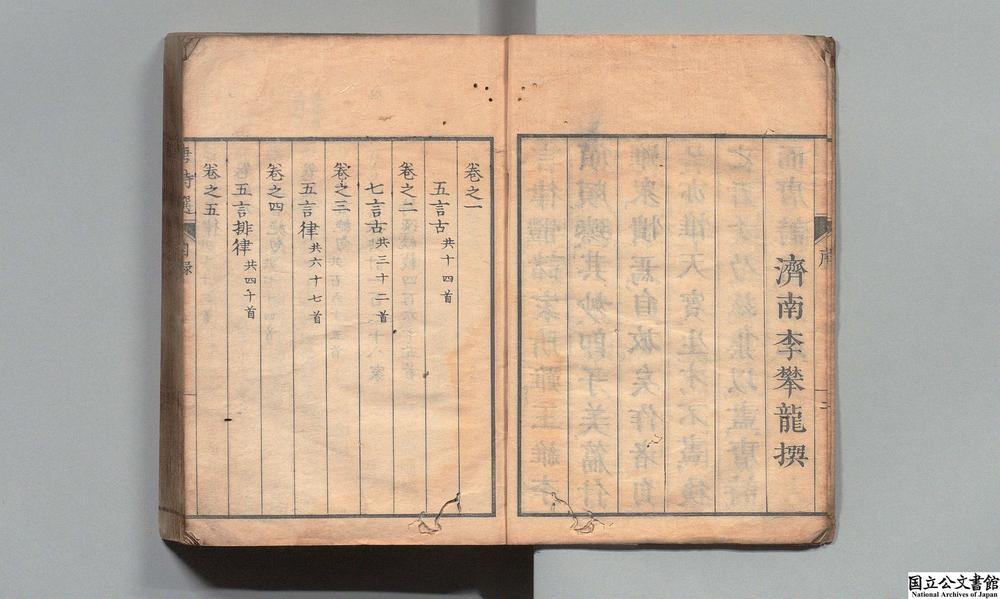 濟南李攀龍撰
序
二
卷之一
五言古共十四首
卷之二
七言古共三十二首
卷之三
五言律共六十七首
卷之四
五言排律共四十首
卷之五
唐詩選
目錄
一
国立公文書館
National Archives of Japan